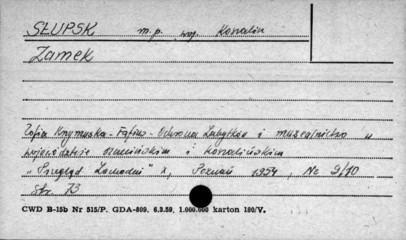 SŁUPSK m.p. woj. Koszalin
Zamek
Zofia Krymuska-Fafius - Ochrona Zabytków i muzealnictwo w
województwie szczecińskim i koszalińskim
„Przegląd Zachodni" X, Poznań 1954, Nr 9/10
str. 73
CWD B-15b Nr 515/P. GDA-809. 6.3.59. 1.000.000 karton 180/V.